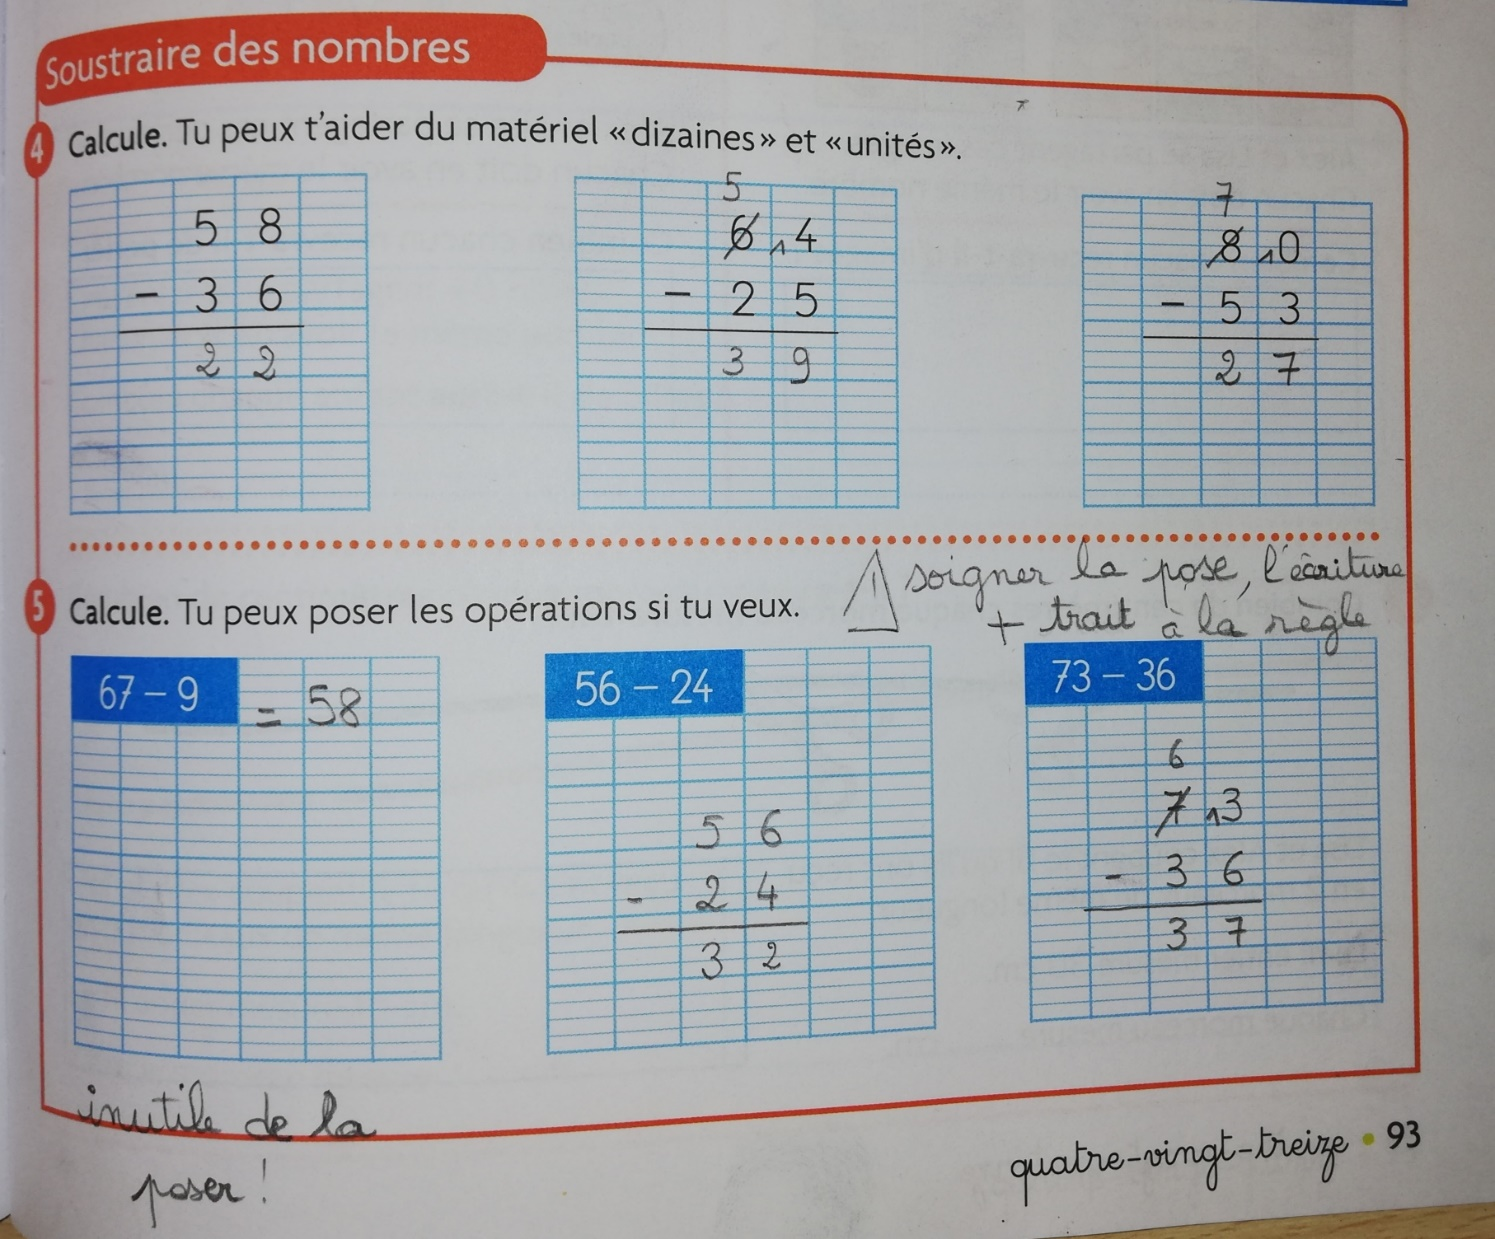 Soustraire des nombres
4 Calcule. Tu peux t'aider du matériel «dizaines» et «unités».
5 8
- 3 6
2 2
5
6 14
- 2 5
3 9
7
8 10
- 5 3
2 7
5 Calcule. Tu peux poser les opérations si tu veux.
! soigner la pose, l'écriture
+ trait à la règle
67 – 9 = 58
56 – 24
5 6
- 2 4
3 2
73 – 36
6
7 13
- 3 6
3 7
inutile de la
poser !
quatre-vingt-treize • 93